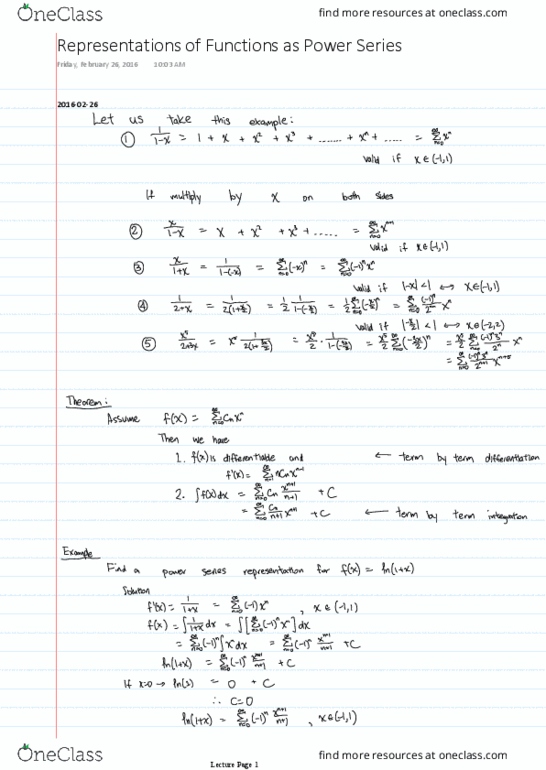 OneClass
find more resources at oneclass.com
Representations of Functions as Power Series
Friday, February 26, 2016 10:03 AM
2016-02-26
Let us take this example:
① 1/(1-x) = 1 + x + x² + x³ + ....... + xⁿ + ..... = Σ_{n=0}^∞ xⁿ
valid if x∈(-1,1)
If multiply by x on both sides
② x/(1-x) = x + x² + x³ + ..... = Σ_{n=0}^∞ xⁿ⁺¹
valid if x∈(-1,1)
③ x/(1+x) = 1/(1-(-x)) = Σ_{n=0}^∞ (-x)ⁿ = Σ_{n=0}^∞ (-1)ⁿ xⁿ
valid if |-x|<1 ↔ x∈(-1,1)
④ 1/(2+x) = 1/(2(1+x/2)) = 1/2 · 1/(1-(-x/2)) = 1/2 Σ_{n=0}^∞ (-x/2)ⁿ = Σ_{n=0}^∞ (-1)ⁿ/2ⁿ xⁿ
valid if |-x/2| < 1 ↔ x∈(-2,2)
⑤ x⁵/(2+3x) = x⁵ 1/(2(1+3x/2)) = x⁵/2 · 1/(1-(-3x/2)) = x⁵/2 Σ_{n=0}^∞ (-3/2 x)ⁿ = x⁵/2 Σ_{n=0}^∞ (-1)ⁿ3ⁿ/2ⁿ xⁿ
= Σ_{n=0}^∞ (-1)ⁿ3ⁿ/2ⁿ⁺¹ xⁿ⁺⁵
Theorem:
Assume f(x) = Σ_{n=0}^∞ Cₙxⁿ
Then we have
1. f(x) is differentiable and ← term by term differentiation
f'(x) = Σ_{n=1}^∞ nCₙxⁿ⁻¹
2. ∫f(x)dx = Σ_{n=0}^∞ Cₙ xⁿ⁺¹/(n+1) + C
= Σ_{n=0}^∞ Cₙ/(n+1) xⁿ⁺¹ + C ← term by term integration
Example
Find a power series representation for f(x) = ln(1+x)
Solution
f'(x) = 1/(1+x) = Σ_{n=0}^∞ (-1)xⁿ , x∈(-1,1)
f(x) = ∫ 1/(1+x) dx = ∫[Σ_{n=0}^∞ (-1)ⁿ xⁿ] dx
= Σ_{n=0}^∞ (-1)ⁿ ∫xⁿdx = Σ_{n=0}^∞ (-1)ⁿ xⁿ⁺¹/(n+1) + C
ln(1+x) = Σ_{n=0}^∞ (-1)ⁿ xⁿ⁺¹/(n+1) + C
If x=0 → = 0 + C
∴ C=0
ln(1+x) = Σ_{n=0}^∞ (-1)ⁿ xⁿ⁺¹/(n+1) , x∈(-1,1)
OneClass
Lecture Page 1
find more resources at oneclass.com